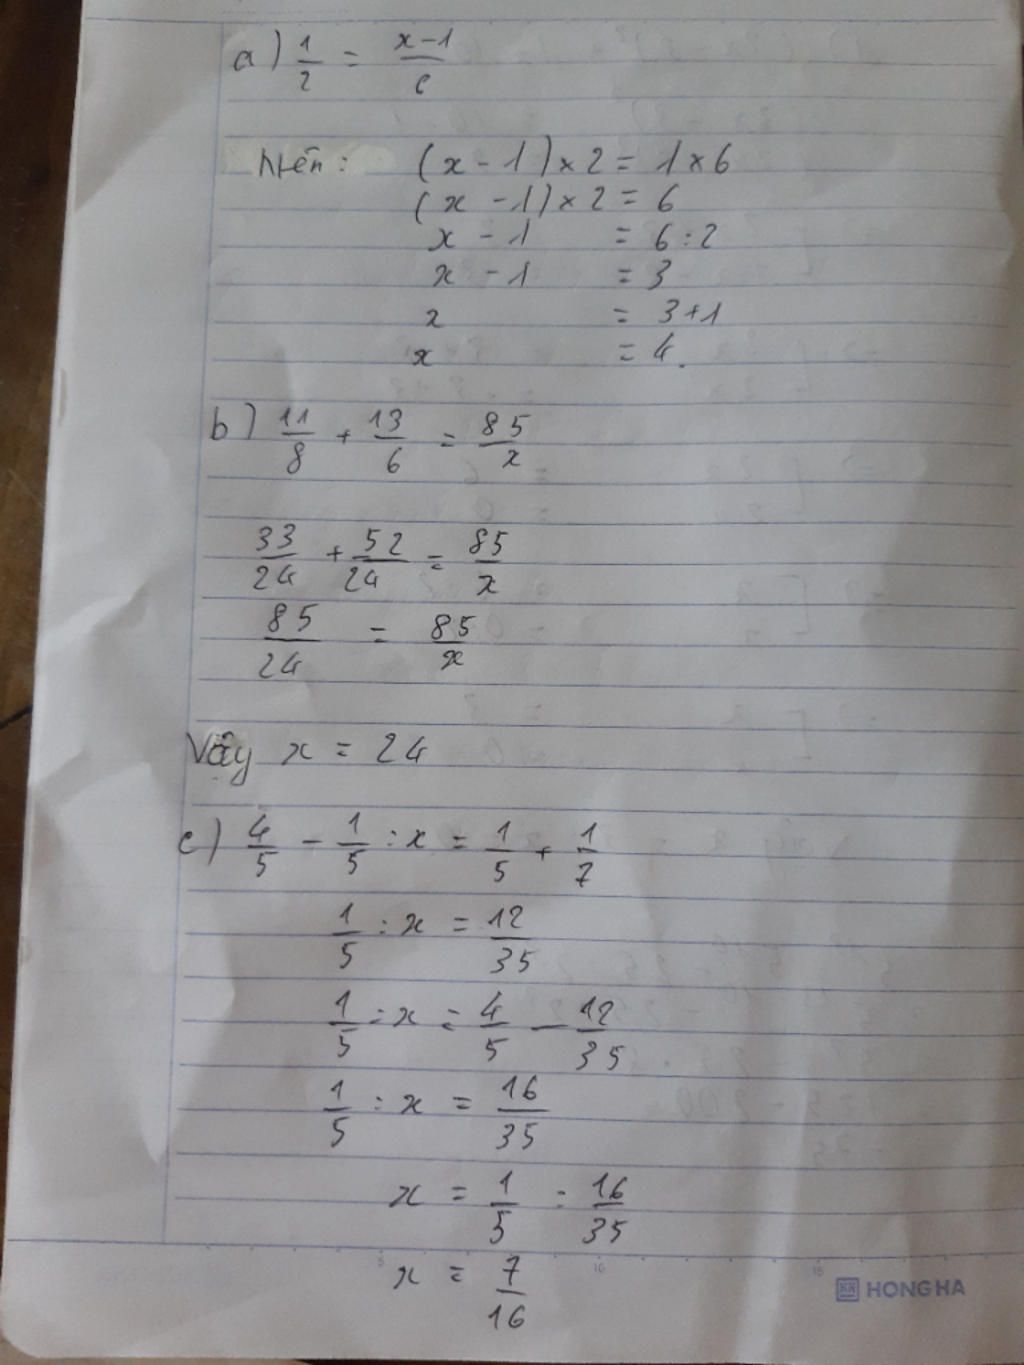 a) 1/2 = x-1/6
Nên: (x - 1) × 2 = 1 × 6
(x - 1) × 2 = 6
x - 1 = 6 : 2
x - 1 = 3
x = 3 + 1
x = 4.
b) 11/8 + 13/6 = 85/x
33/24 + 52/24 = 85/x
85/24 = 85/x
Vậy x = 24
c) 4/5 - 1/5 : x = 1/5 + 1/7
1/5 : x = 12/35
1/5 : x = 4/5 - 12/35
1/5 : x = 16/35
x = 1/5 : 16/35
x = 7/16
5 10 15
HONG HA